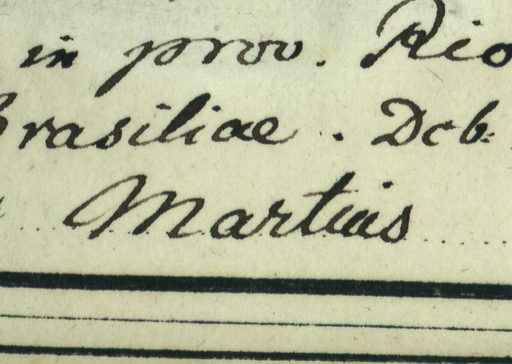 in prov. Rio
Brasiliae. Deb.
Martius